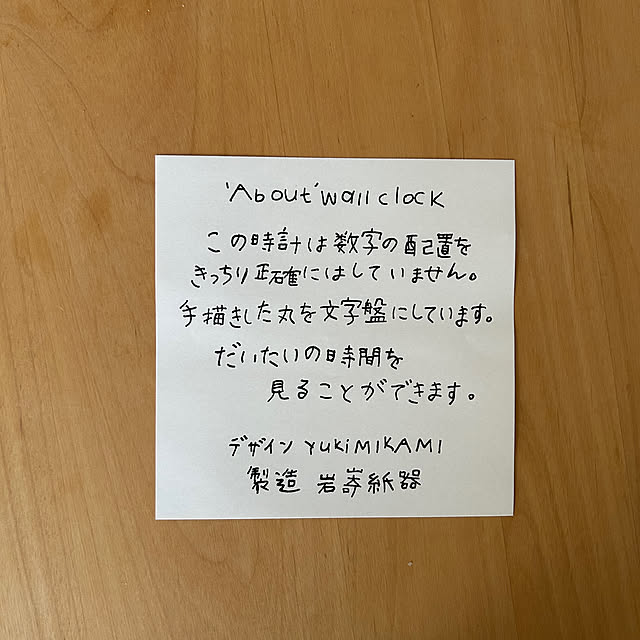 'About' wall clock
この時計は数字の配置を
きっちり正確にはしていません。
手描きした丸を文字盤にしています。
だいたいの時間を
見ることができます。
デザイン YUKI MIKAMI
製造 岩嵜紙器